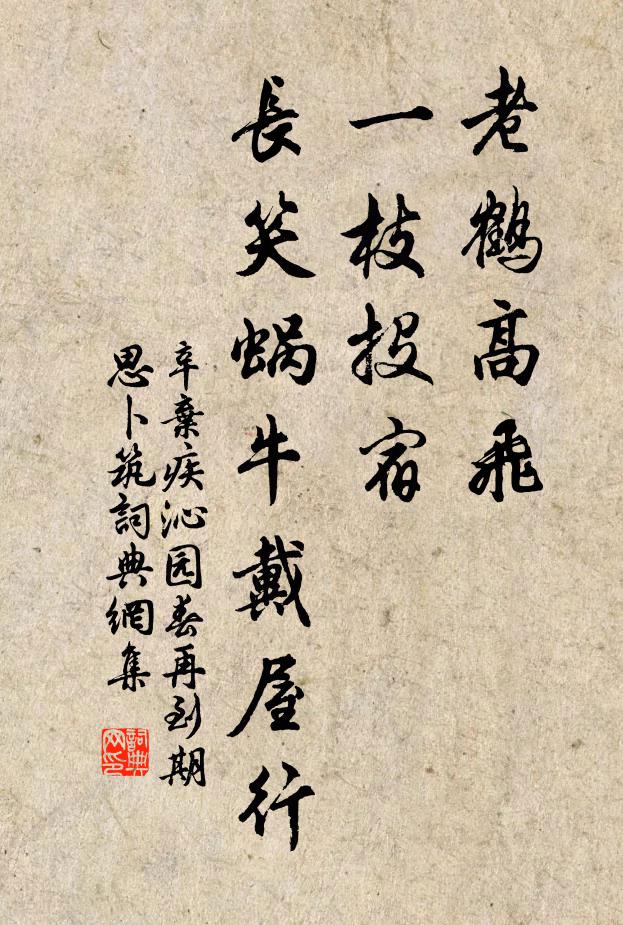 老鶴高飛
一枝投宿
長笑蝸牛戴屋行
辛棄疾沁园春再到期
思卜筑詞典網集
詞典网印